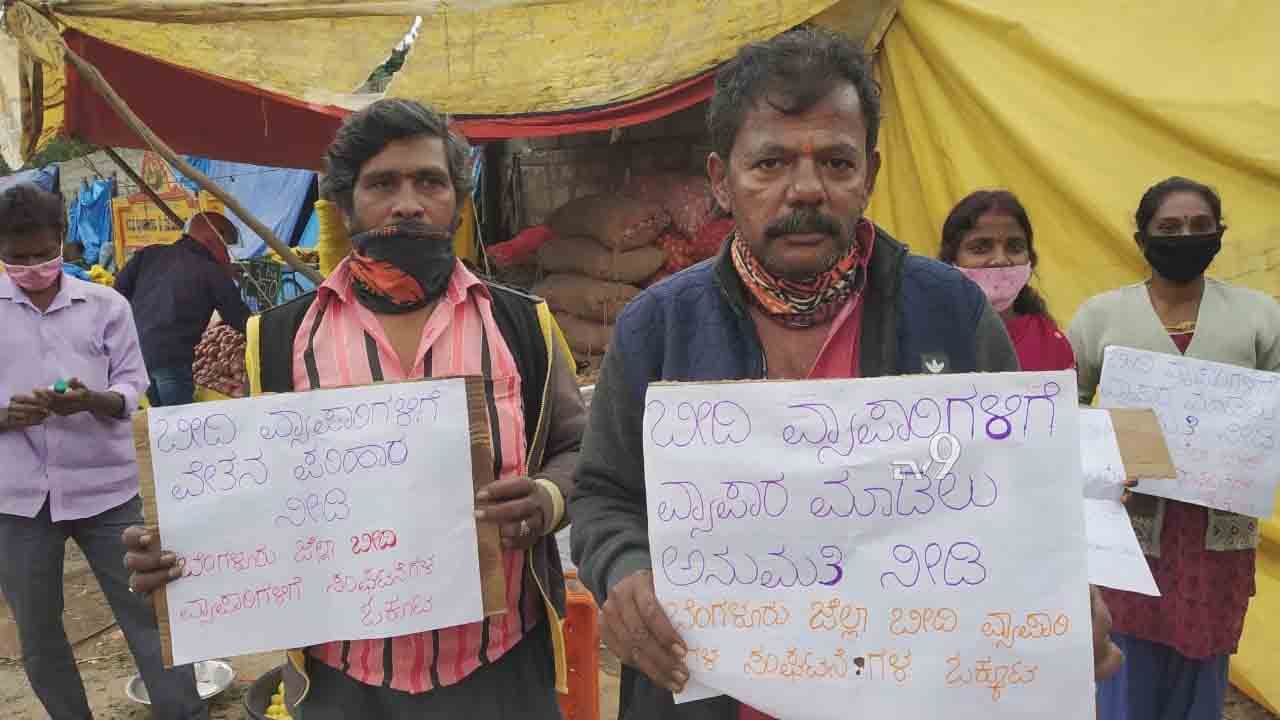 ಬೀದಿ ವ್ಯಾಪಾರಿಗಳಿಗೆ
ವೇತನ ಪರಿಹಾರ
ನೀಡಿ
ಬೆಂಗಳೂರು ಜಿಲ್ಲಾ ಬೀದಿ
ವ್ಯಾಪಾರಿಗಳಿಗೆ ಸಂಘಟನೆಗಳ
ಒಕ್ಕೂಟ
ಬೀದಿ ವ್ಯಾಪಾರಿಗಳಿಗೆ
ವ್ಯಾಪಾರ ಮಾಡಲು
ಅನುಮತಿ ನೀಡಿ
ಬೆಂಗಳೂರು ಜಿಲ್ಲಾ ಬೀದಿ ವ್ಯಾಪಾರಿ
ಗಳ ಸಂಘಟನೆಗಳ ಒಕ್ಕೂಟ
TV9
ಬೀದಿ ವ್ಯಾಪಾರಿಗಳಿಗೆ
ವ್ಯಾಪಾರ ಮಾಡಲು